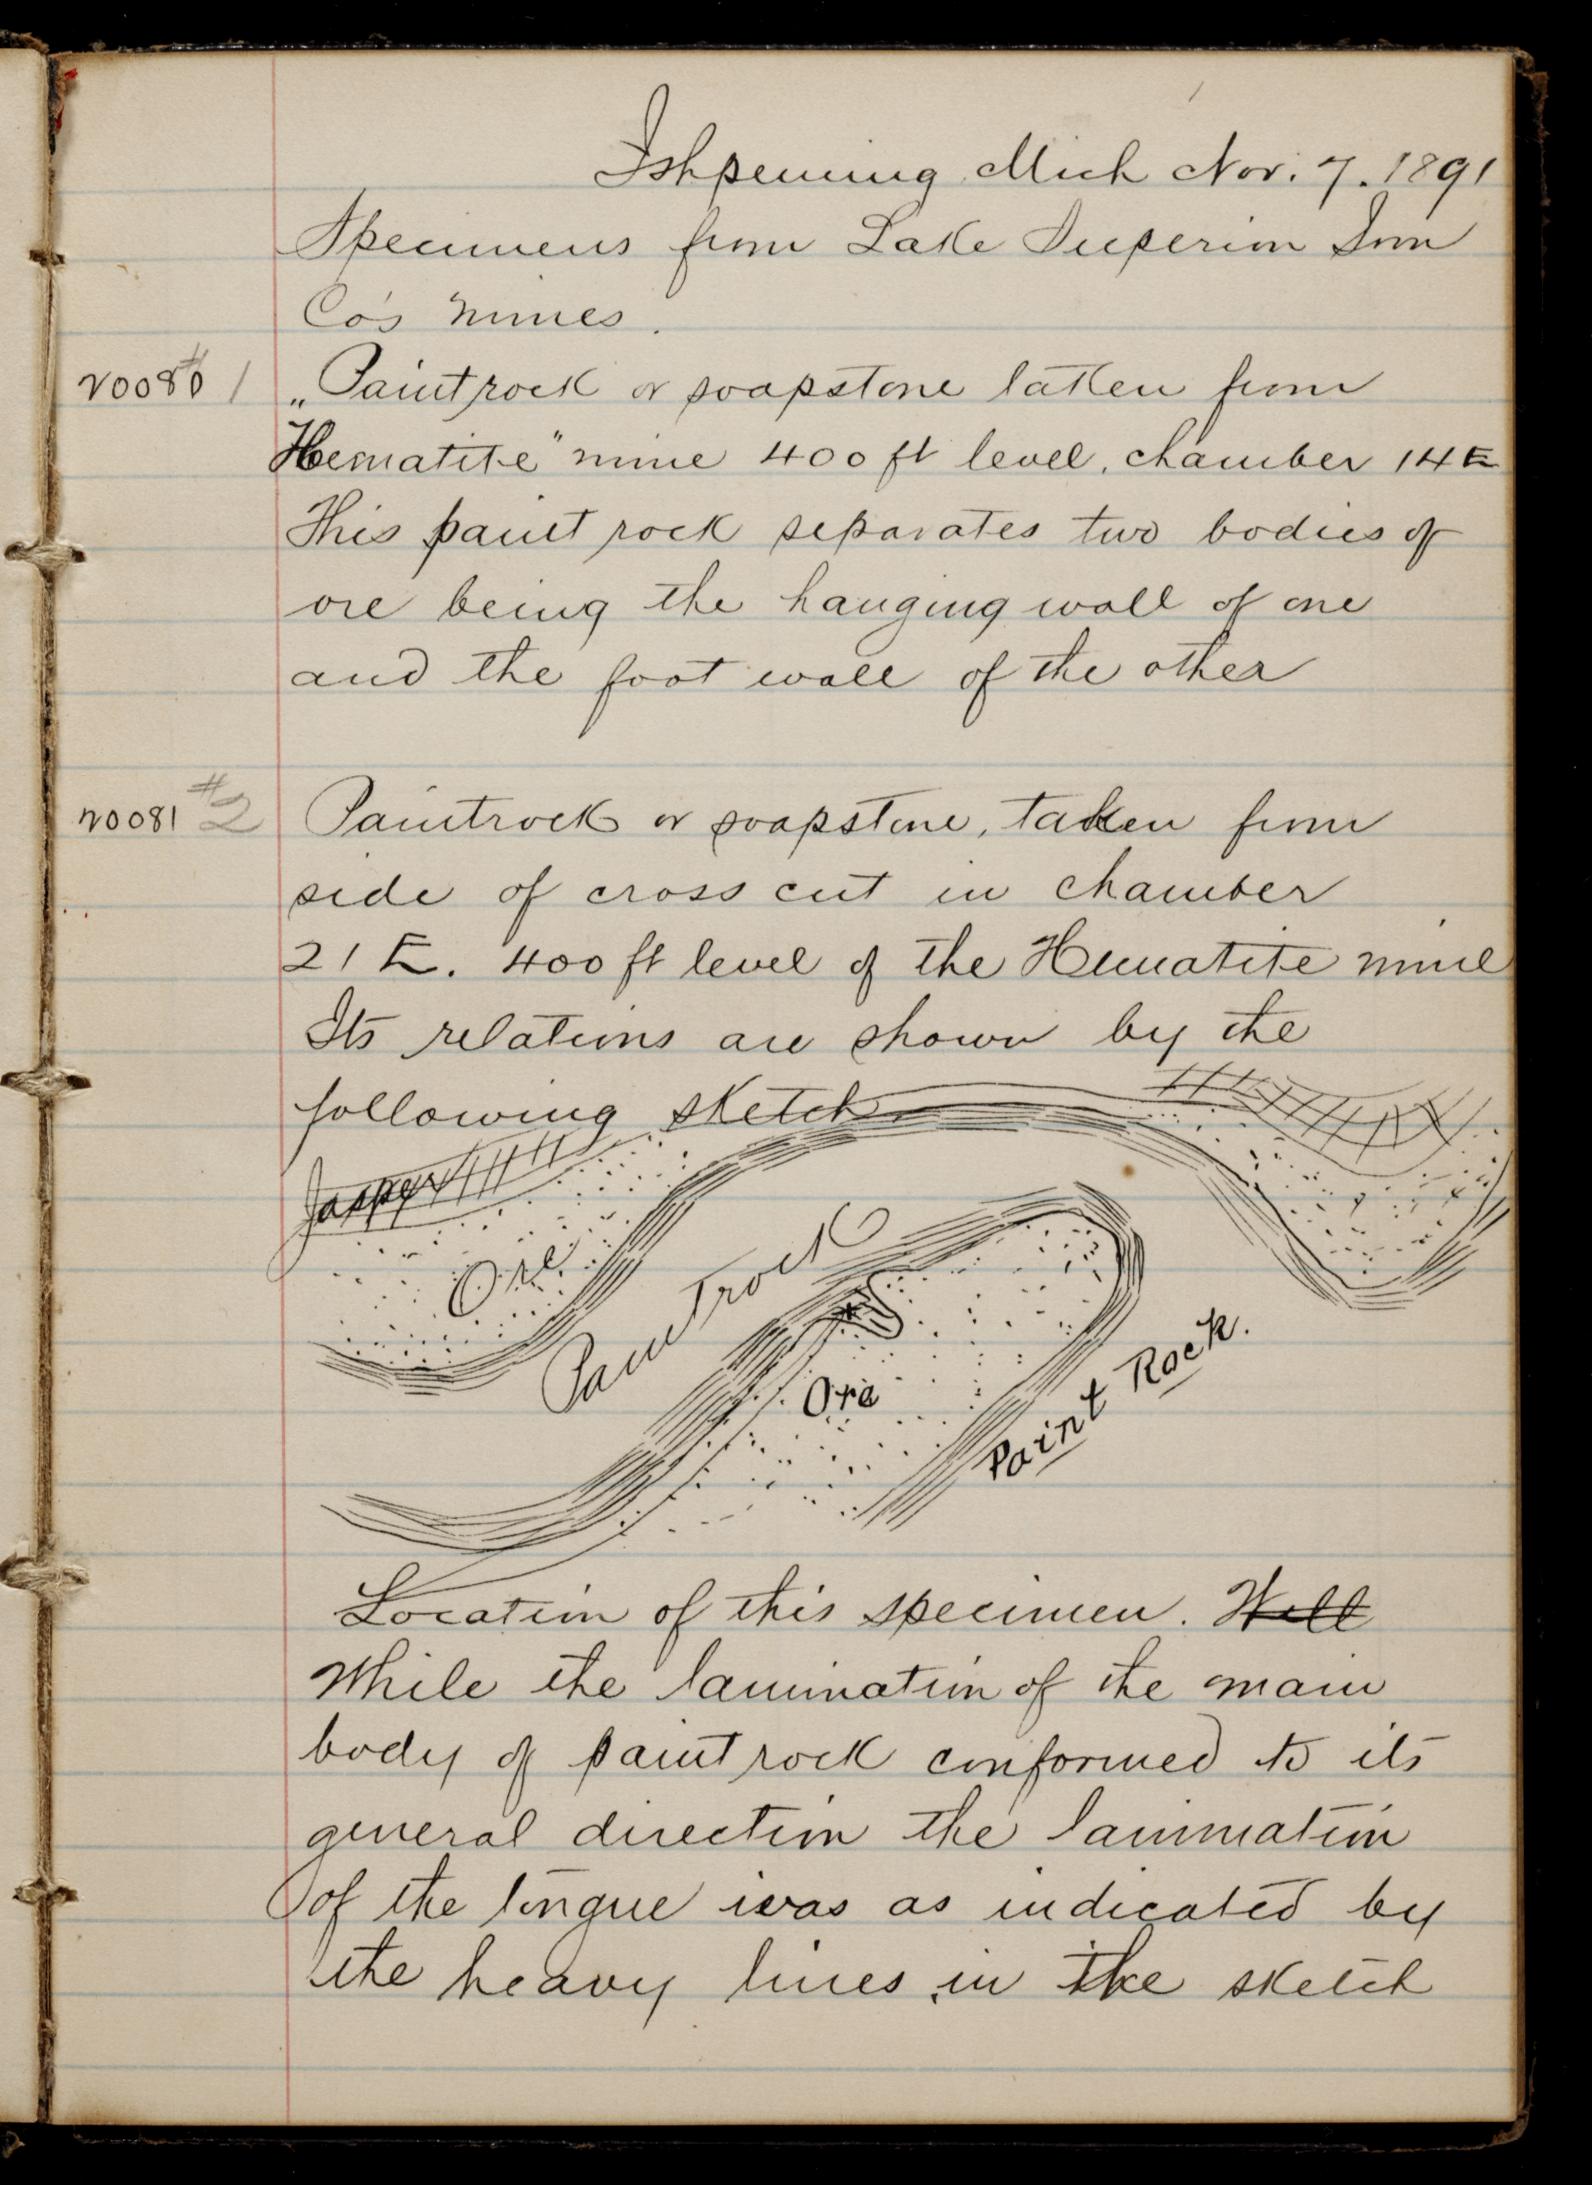 Ishpeming Mich Nov. 7. 1891
Specimens from Lake Superior Iron
Co's mines.
20080 #1 „Paint rock or soapstone taken from
Hematite" mine 400 ft level, chamber 14 E
This paint rock separates two bodies of
ore being the hanging wall of one
and the foot wall of the other
20081 #2 Paintrock or soapstone, taken from
side of cross cut in chamber
21 E. 400 ft level of the Hematite mine
Its relations are shown by the
following sketch
Jasper
Ore
Paint rock
Ore
Paint Rock.
Location of this specimen. Will
While the lamination of the main
body of paint rock conformed to its
general direction the lamination
of the tongue was as indicated by
the heavy lines in the sketch